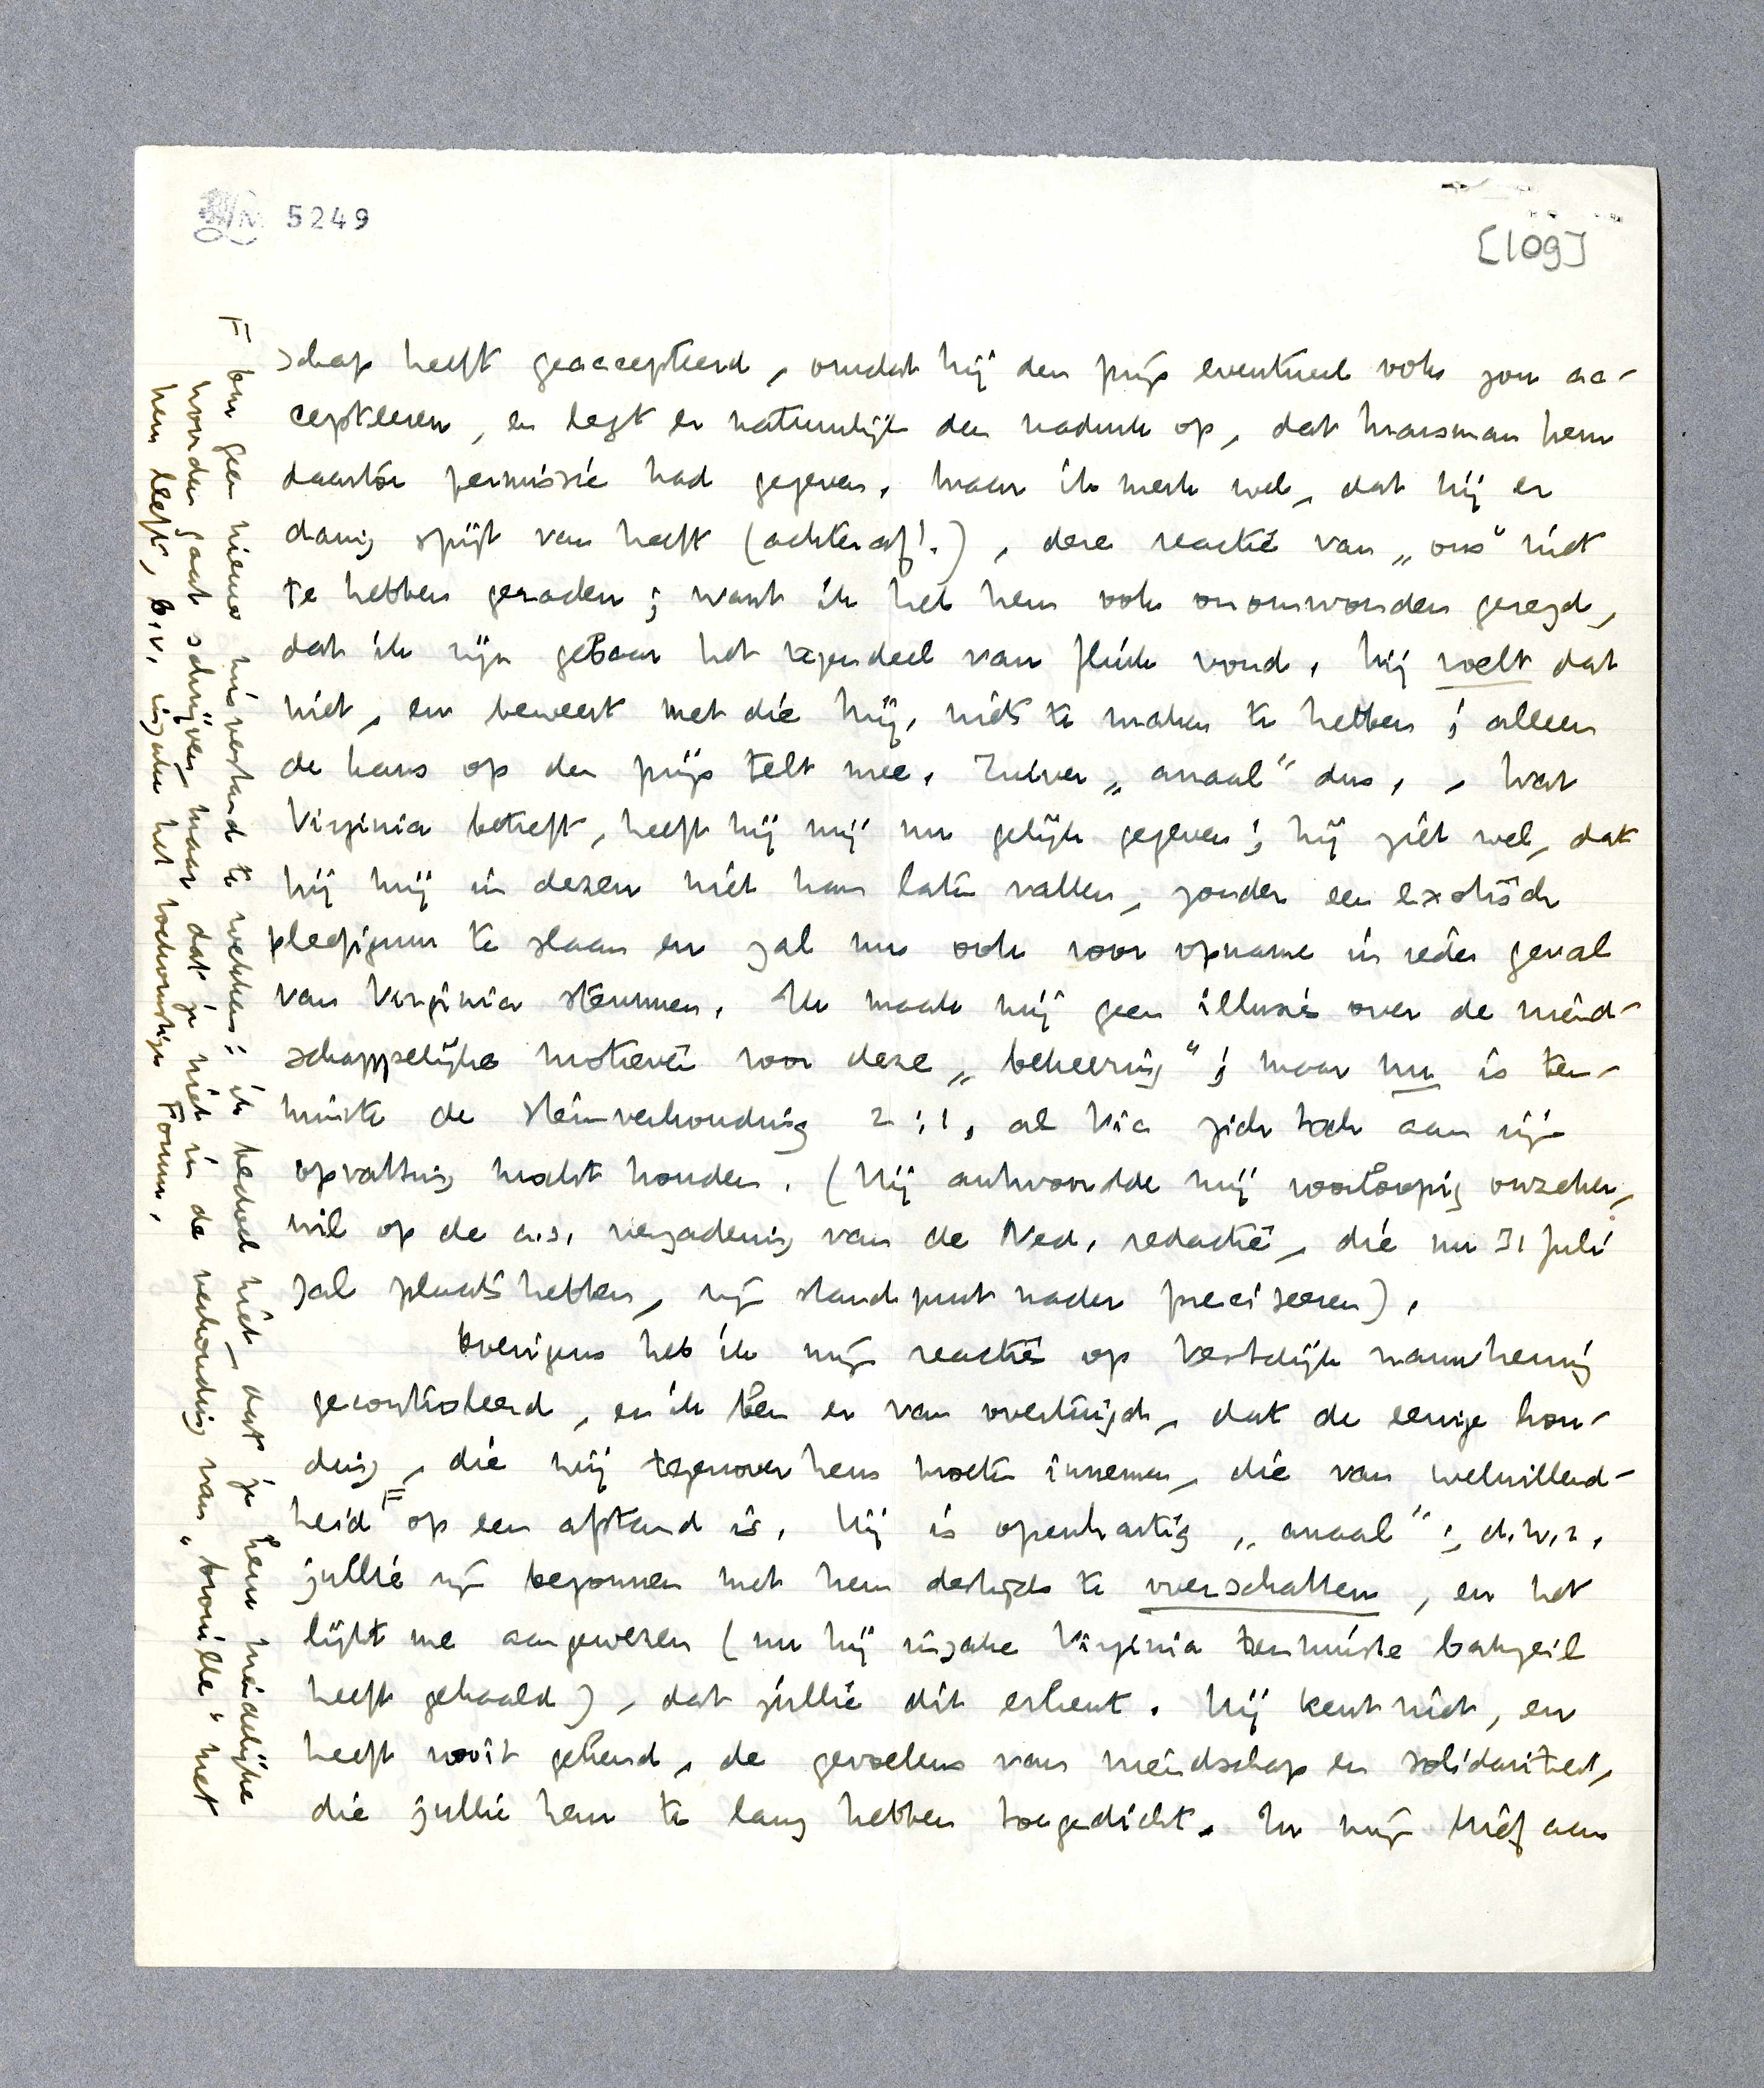 5249
[109]
schap heeft geaccepteerd, omdat hij den prijs eventueel ook zou ac-
cepteeren, en legt er natuurlijk den nadruk op, dat Marsman hem
daartoe permissie had gegeven. Maar ik merk wel, dat hij er
danig spijt van heeft (achteraf!), deze reactie van „ons" niet
te hebben geraden; want ik heb hem ook onomwonden gezegd,
dat ik zijn gebaar het tegendeel van fluik vond. Hij voelt dat
niet, en beweert met die hij. niets te maken te hebben; alleen
de kans op den prijs telt mee. Zuiver „anaal" dus. - Wat
Virginia betreft, heeft hij mij nu gelijk gegeven; hij ziet wel, dat
hij mij in dezen niet kan laten vallen, zonder een exotisch
pleefiguur te slaan en zal nu ook voor opname in ieder geval
van Virginia stemmen. Ik maak mij geen illusie over de vriend-
schappelijke motieven voor deze „bekeering"; maar nu is ten-
minste de stemverhouding 2:1, al Vic zich toch aan zijn
opvatting mocht houden. (Hij antwoordde mij voorloopig onzeker,
wil op de a.s. vergadering van de Ned. redactie, die nu 31 Juli
zal plaats hebben, zijn standpunt nader preciseeren).
Overigens heb ik mijn reactie op Vestdijk nauwkeurig
gecontroleerd, en ik ben er van overtuigd, dat de eenige hou-
ding, die wij tegenover hem moeten innemen, die van welwillend-
heid F op een afstand is. Hij is openhartig „anaal"; d.w.z.
jullie zijn begonnen met hem destijds te overschatten, en het
lijkt me aangewezen (nu hij inzake Virginia tenminste bakzeil
heeft gehaald), dat jullie dit erkent. Hij kent niet, en
heeft nooit gekend, de gevoelens van vriendschap en solidariteit,
die jullie hem te lang hebben toegedicht. In mijn brief aan
F om geen nieuw misverstand te wekken: ik bedoel niet, dat je hem vriendelijke
woorden gaat schrijven, maar dat je niet in de verhouding van „brouille" met
hem leeft, b.v. inzake het toekomstige Forum.